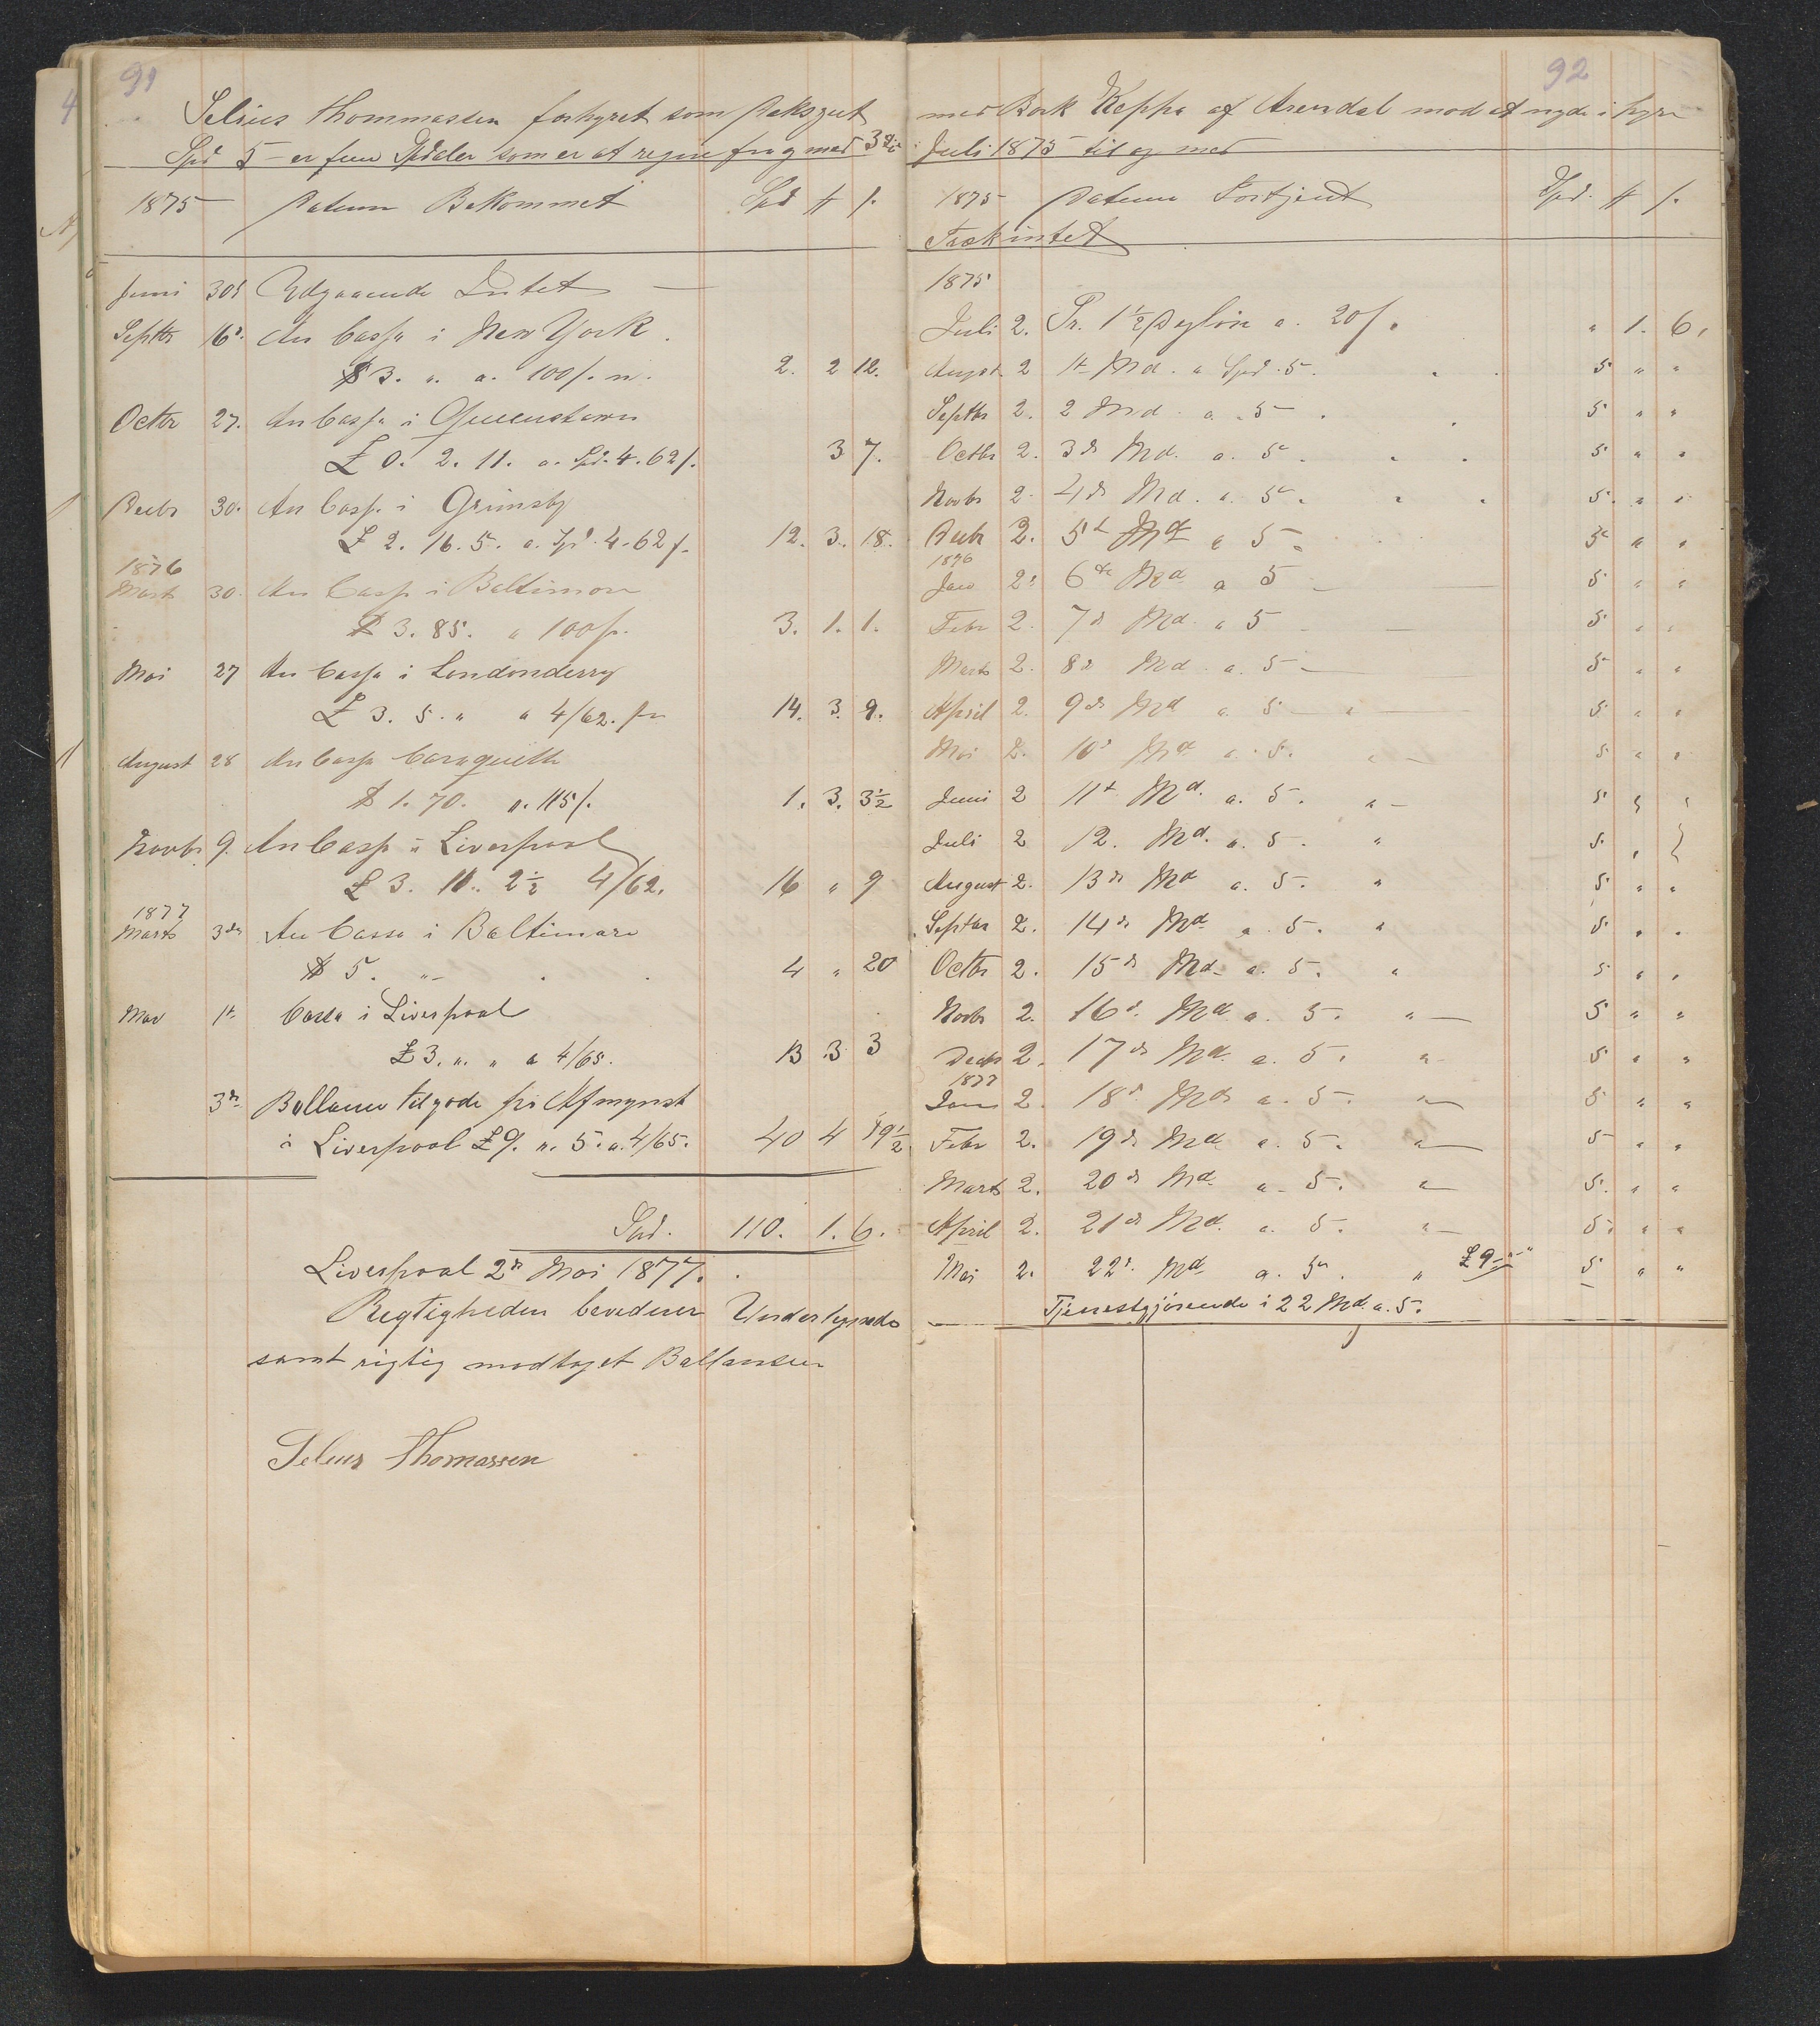 91
Selius Thommassen forhyret som Daksgut
Spd 5 – er fem Spdaler som er at regne fra og med 3die
1875 Datum Bekommet Spd # s.
Juni 30d Udgaaende Intet —
Septbr 16d An Cassa i New York.
$ 3. " a. 100 s. n. 2. 2 12.
Octbr 27. An Cassa i Queenstown
£ 0. 2. 11. a. Spd. 4. 62 s. 3 7.
Decbr 30. An Cassa i Grimsby
£ 2. 16. 5. a. Spd. 4. 62 s. 12. 3. 18.
1876
Marts 30. An Cassa i Baltimore
$ 3. 85. " 100 s. 3. 1. 1.
Mai 27 An Cassa i Londonderry
£ 3. 5. " a 4/62. 14. 3. 9.
August 28 An Cassa Caraquette
$ 1. 70. a. 115 s. 1. 3. 3½
Novbr 9. An Cassa i Liverpool
£ 3. 10. 2½ 4/62. 16 " 9
1877
Marts 3de An Cassa i Baltimore
$ 5. " 4 " 20
Mai 1t Cassa i Liverpool
£ 3. " " a 4/65. 13 3 3
3de Ballance tilgode fra Afmynst
i Liverpool £ 9. ". 5. a. 4/65. 40 4 19½
Spd. 110. 1. 6.
Liverpool 2de Mai 1877.
Regtigheden bevidner Undertegnede
samt rigtig modtaget Ballansen
Selius Thomassen
92
med Bark Keppa af Arendal mod at nyde i hyre
Juli 1875 til og med
1875 Datum Fortjent Spd. # s.
Træk intet
1875
Juli 2. Pr. 1½ Døgløn a. 20 s. " 1. 6.
August 2 1t Md. a Spd. 5. 5 " "
Septbr 2. 2 Md. a. 5 5 " "
Octbr 2. 3de Md. a. 5 5 " "
Novbr 2. 4de Md. a. 5 5. " "
Decbr 2. 5t Md. a 5 5 " "
1876
Jan 2. 6te Md. a 5 5 " "
Febr 2. 7d Md. a 5 5 " "
Marts 2. 8d Md. a. 5 5 " "
April 2. 9de Md a. 5 5 " "
Mai 2. 10d Md a. 5. 5 " "
Juni 2 11t Md. a. 5. 5 " "
Juli 2 12. Md. a. 5. " 5. " "
August 2. 13de Md a. 5. " 5 " "
Septbr 2. 14de Md a. 5. " 5 " "
Octbr 2. 15de Md. a. 5. " 5 " "
Novbr 2. 16d. Md. a. 5. " 5 " "
Decbr 2. 17de Md. a. 5. " 5 " "
1877
Jan 2. 18d. Md. a. 5. " 5 " "
Febr 2. 19de Md. a. 5. " 5 " "
Marts 2. 20de Md. a. 5. " 5. " "
April 2. 21de Md. a. 5. " 5. " "
Mai 2. 22d. Md. a. 5. " £ 9 – " – " 5 " "
Tjenestgjørende i 22 Md. a. 5.